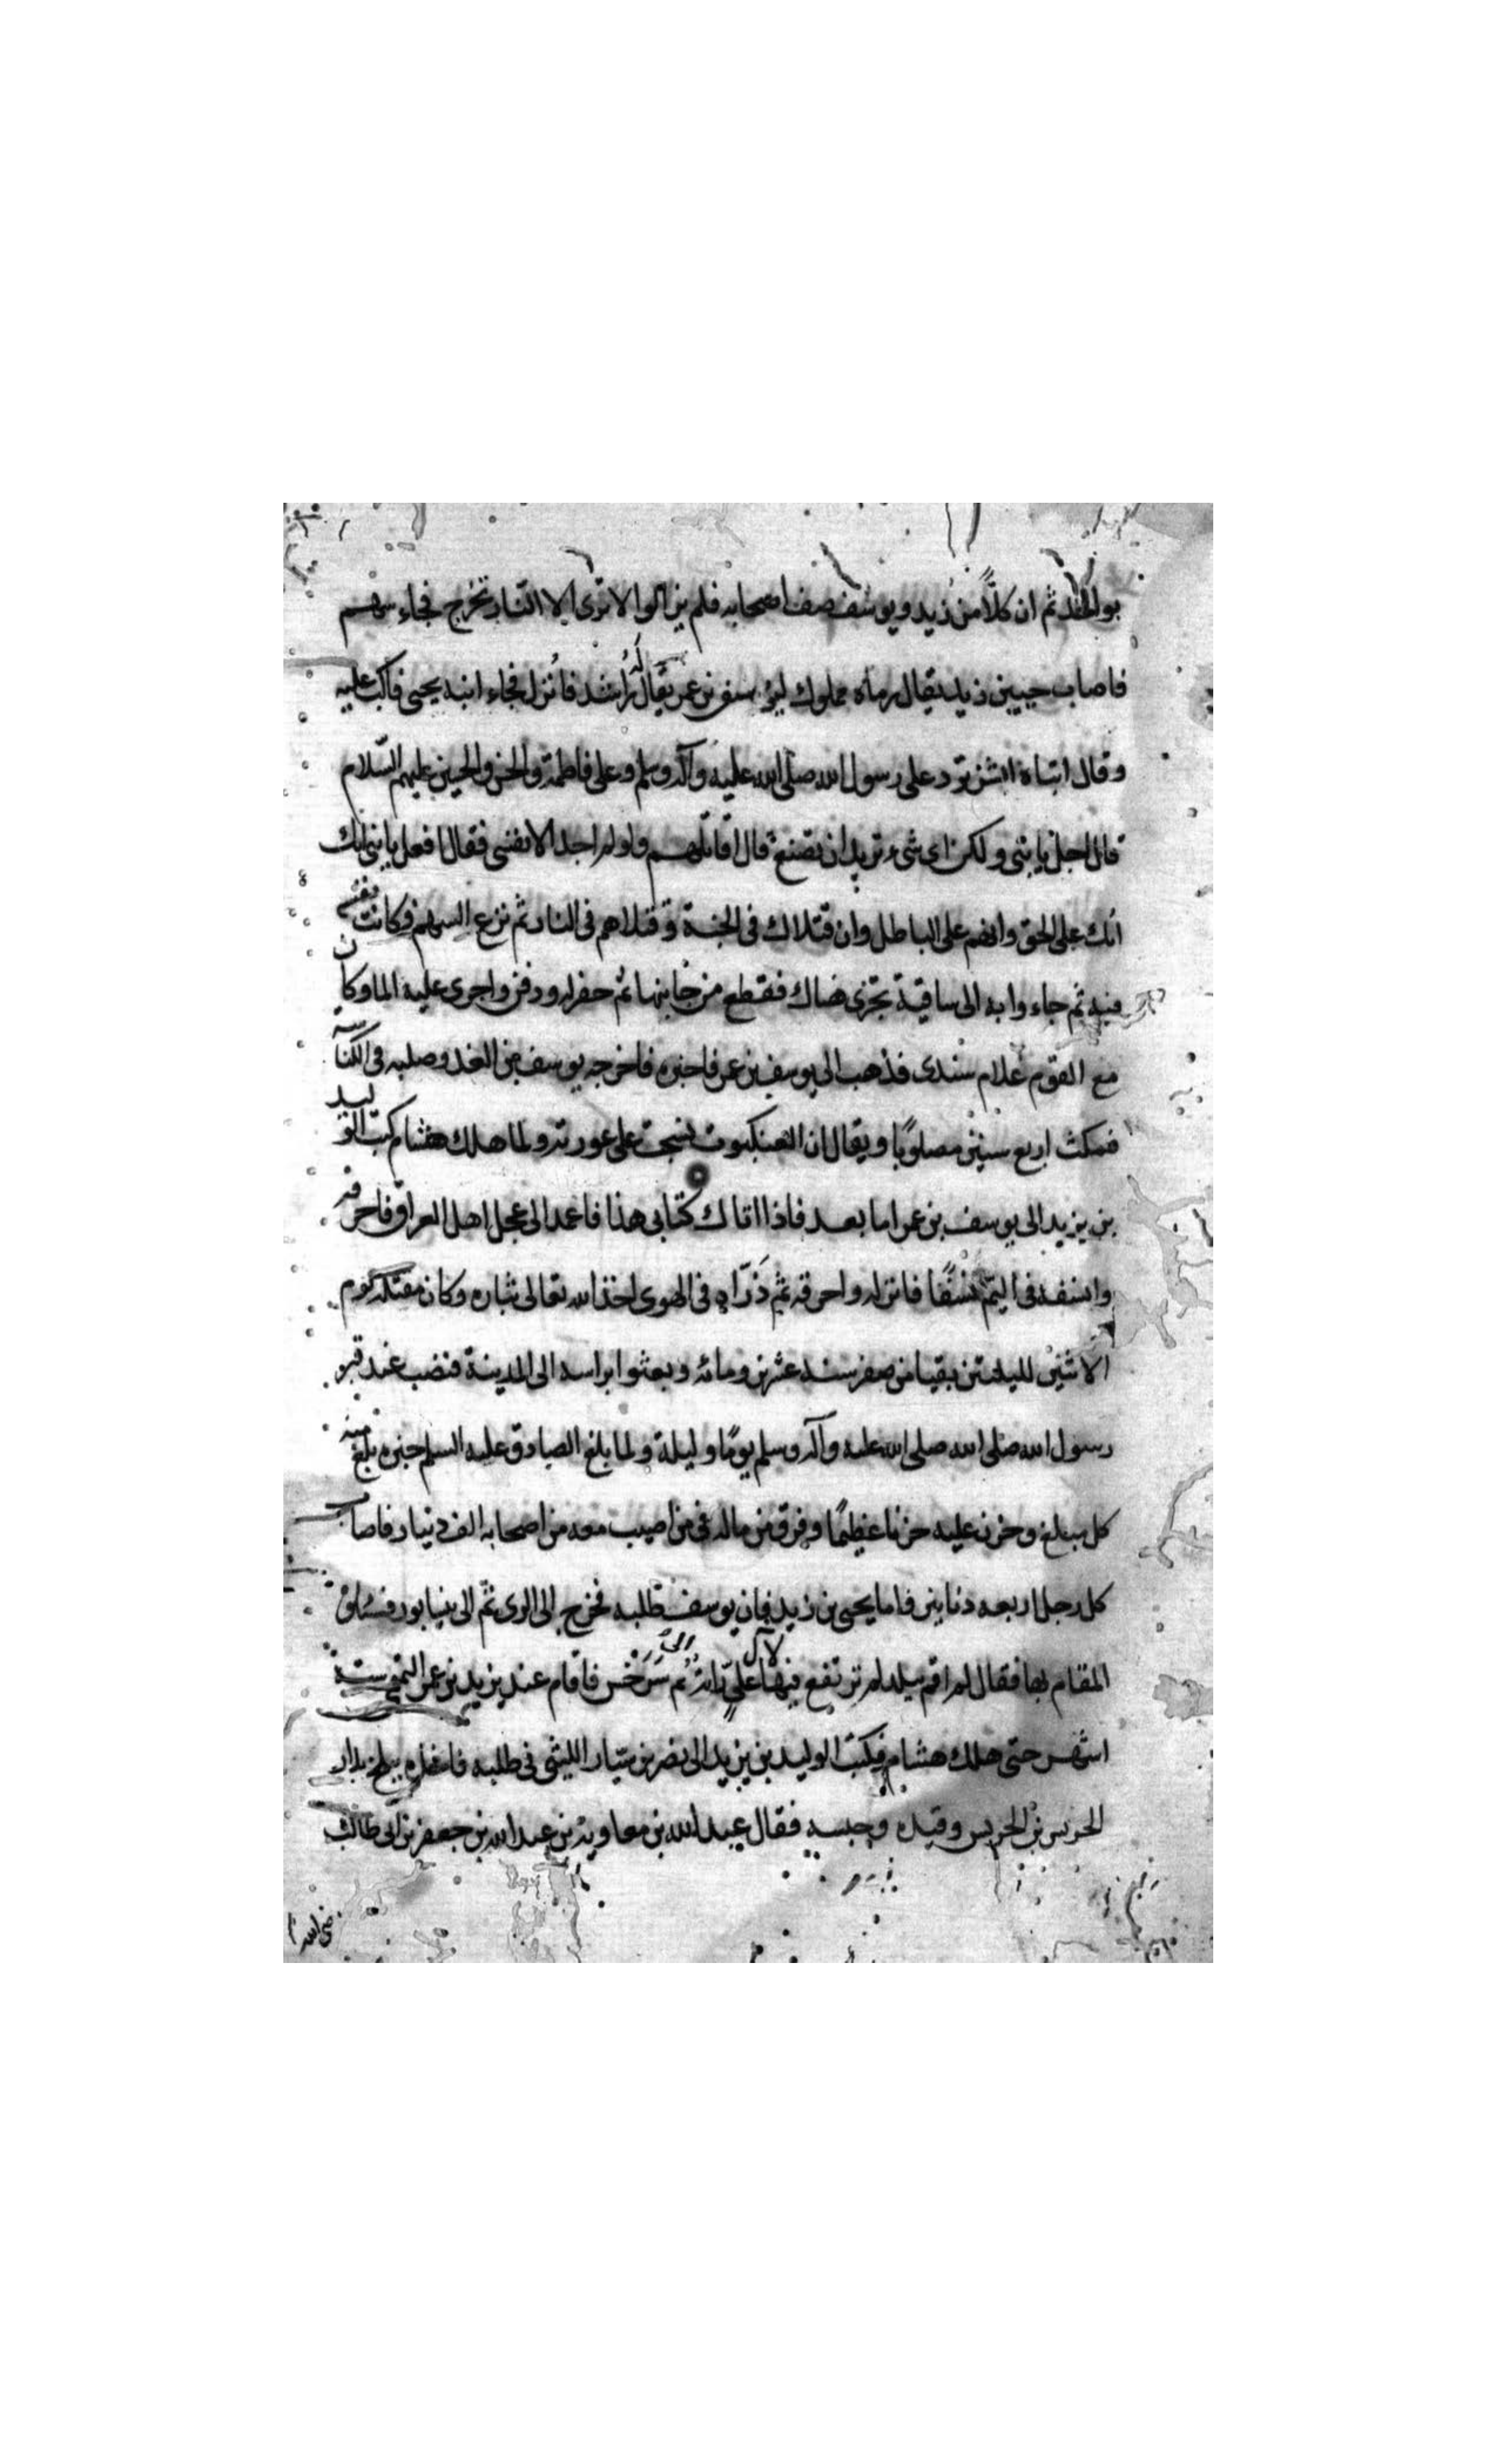 ثم ان كلّاً من زيد ويوسف صف اصحابه فلم يزالوا لا ترى الا النار تخرج فجاء سهم
فاصاب جبين زيد يقال رماه مملوك ليوسف بن عمر يقال له راشد فانزل فجاء ابنه يحيى فاكب عليه
وقال ابتاه ابشر ترد على رسول الله صلى الله عليه وآله وسلم وعلى فاطمة والحسن والحسين عليهم السلام
قال اجل يا بنى ولكن اى شىء تريد ان تصنع قال اقاتلهم ولو لم اجد الا نفسى فقال افعل يا بنى انك
انك على الحق وانهم على الباطل وان قتلاك فى الجنة وقتلاهم فى النار ثم نزع السهم فكانت نفسه
فيه ثم جاءوا به الى ساقية تجرى هناك فقطع من جانبها ثم حفر له ودفن واجرى عليه الما وكان
مع القوم غلام سندى فذهب الى يوسف بن عمر فاخبره فاخرجه يوسف من الغد وصلبه فى الكناسه
فمكث اربع سنين مصلوبًا ويقال ان العنكبوت نسجت على عورته ولما هلك هشام كتب الوليد
بن يزيد الى يوسف بن عمر اما بعد فاذا اتاك كتابى هذا فاعمد الى عجل اهل العراق فاحرقه
وانسفه فى اليمّ نسفًا فانزله واحرقه ثم ذرّاه فى الهوى اخذ الله تعالى بثاره وكان مقتله يوم
الاثنين لليلتين بقيا من صفر سنه عشرين ومائه وبعثوا براسه الى المدينة فنصب عند قبر
رسول الله صلى الله صلى الله عليه وآله وسلم يومًا وليلة ولما بلغ الصادق عليه السلم خبره بلغ منه
كل مبلغ وحزن عليه حزنا عظيمًا وفرق من ماله فى من اصيب معه من اصحابه الف دينار فاصاب
كل رجل اربعه دنانير فاما يحيى بن زيد فان يوسف طلبه فخرج الى الرى ثمّ الى نيسابور فسئلوه
المقام بها فقال لم اقم ببلد لم ترتفع فيها لآل علىّ راية ثم الى سرخس فاقام عند يزيد بن عمر التيمى ستة
اشهر حتى هلك هشام فكتب الوليد بن يزيد الى نصر بن سيّار الليثى فى طلبه ببلخ بدار
الحريس بن الحريس وقيده وحبسه فقال عبد الله بن معاوية بن عبد الله بن جعفر بن ابى طالب